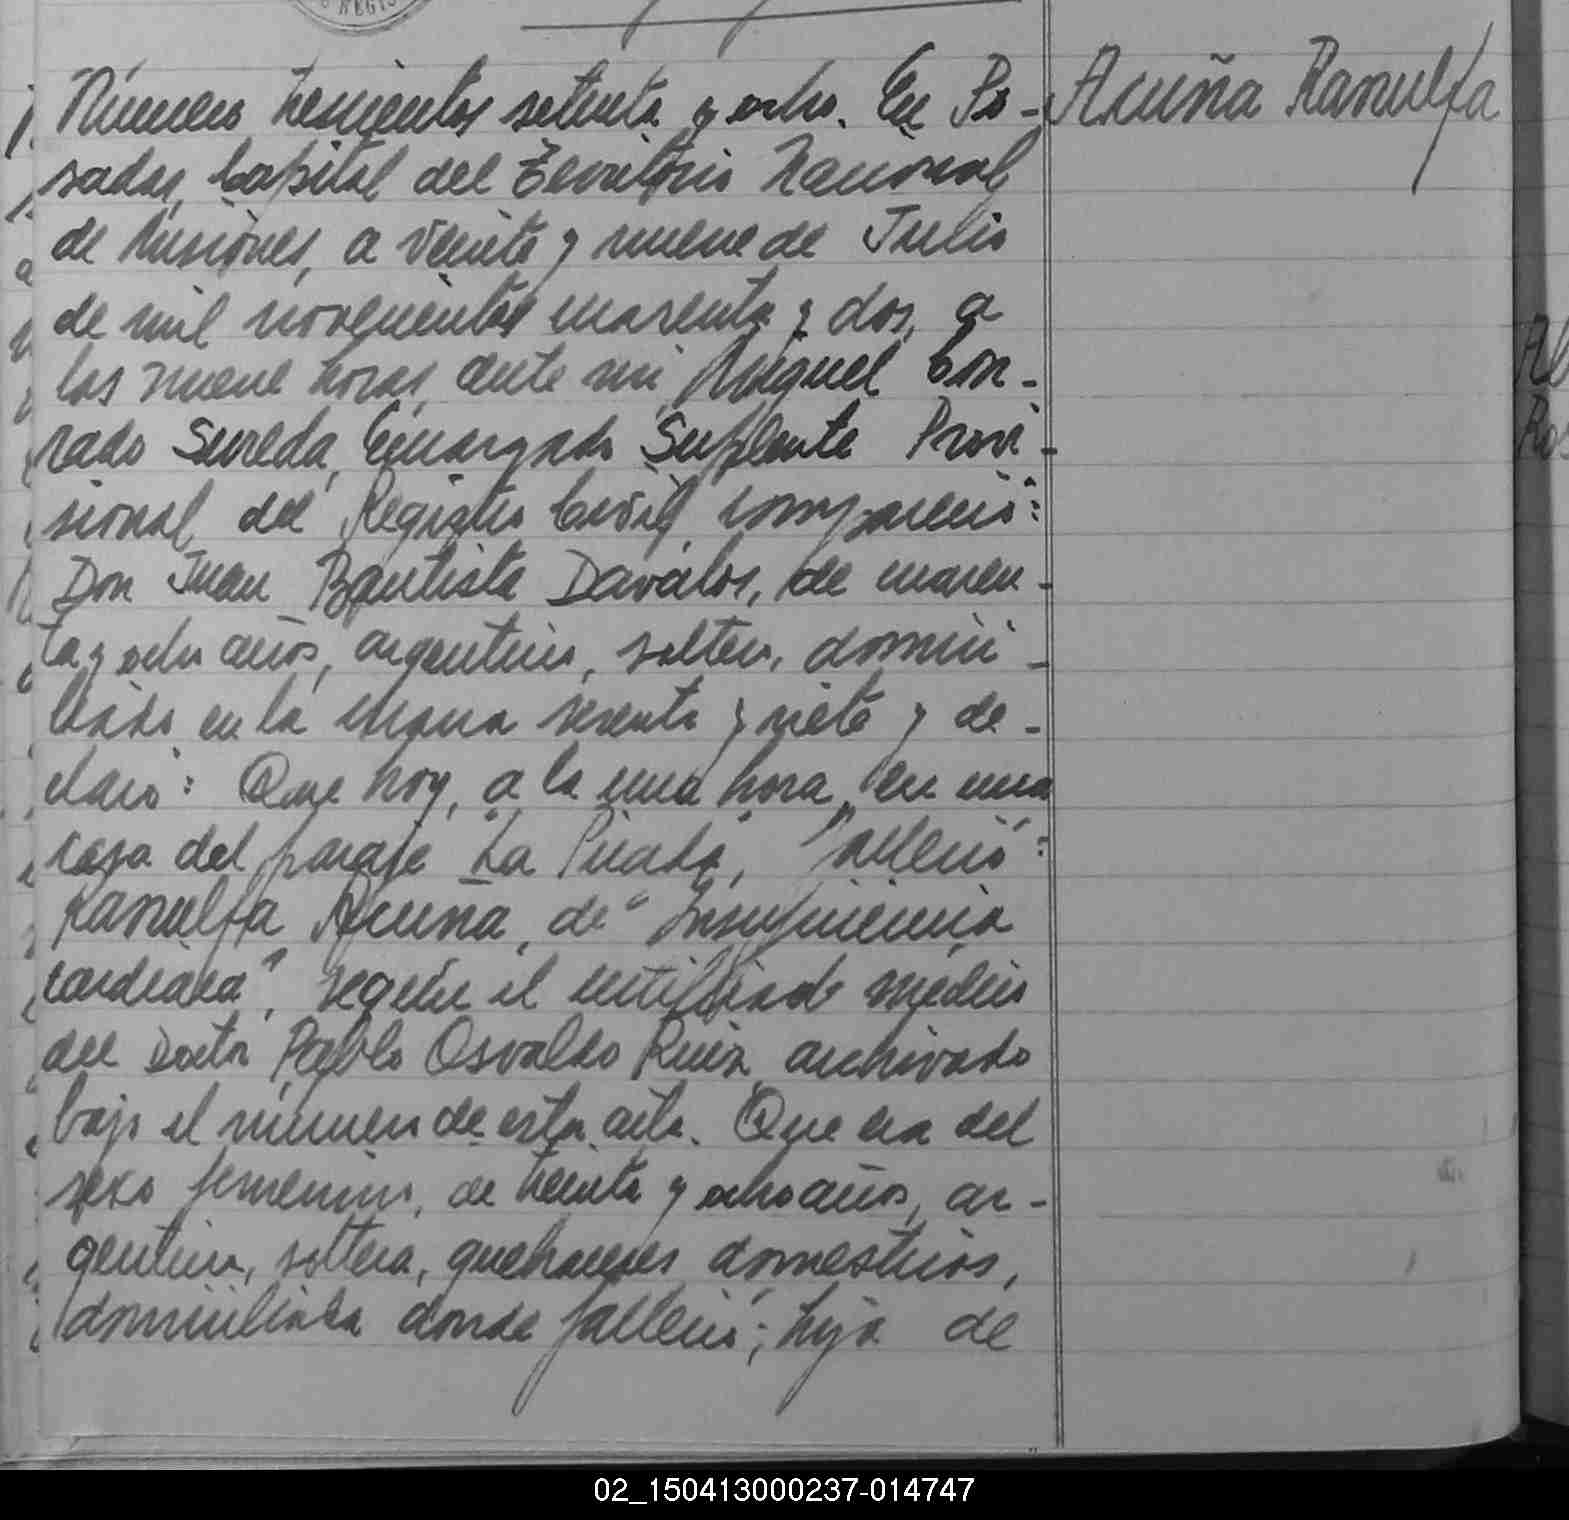 Número trescientos setenta y ocho. En Po-
Acuña Ranulfa
sadas, Capital del Territorio Nacional
de Misiones, a veinte y nueve de Julio
de mil novecientos cuarenta y dos, a
las nueve horas, ante mí, Miguel Con-
rado Sureda, Encargado Suplente Provi-
sional del Registro Civil, compareció:
Don Juan Bautista Davalos, de cuaren-
ta y ocho años, argentino, soltero, domici-
liado en la chacra sesenta y siete y de-
claró: Que hoy, a la una hora, en una
casa del paraje "La Picada", falleció:
Ranulfa Acuña, de "Insuficiencia
cardíaca", según el certificado médico
del Doctor Pablo Osvaldo Ruiz archivado
bajo el número de esta acta. Que era del
sexo femenino, de treinta y ocho años, ar-
gentina, soltera, quehaceres domésticos,
domiciliada donde falleció; hija de
02_150413000237-014747